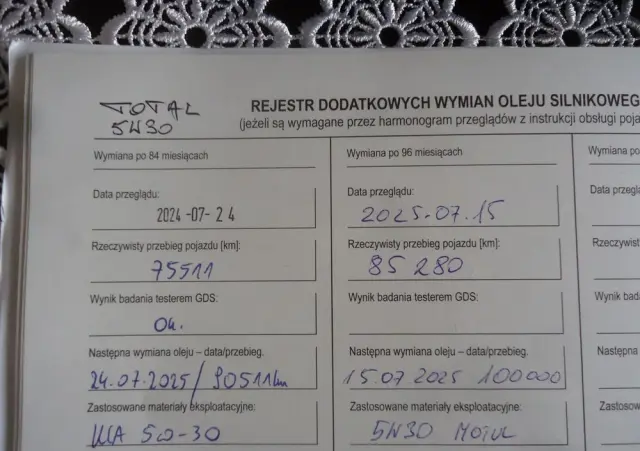 TOTAL
5W30
REJESTR DODATKOWYCH WYMIAN OLEJU SILNIKOWEG
(jeżeli są wymagane przez harmonogram przeglądów z instrukcji obsługi poja
Wymiana po 84 miesiącach
Data przeglądu:
2024-07-24
Rzeczywisty przebieg pojazdu [km]:
75511
Wynik badania testerem GDS:
Ok.
Następna wymiana oleju – data/przebieg.
24.07.2025/90511km
Zastosowane materiały eksploatacyjne:
5w-30
Wymiana po 96 miesiącach
Data przeglądu:
2025.07.15
Rzeczywisty przebieg pojazdu [km]:
85 280
Wynik badania testerem GDS:
Następna wymiana oleju – data/przebieg.
15.07 2025 100000
Zastosowane materiały eksploatacyjne:
5W30 MOTUL
Wymiana po
Data przeglą
Rzeczywist
Wynik bada
Następna
Zastosowa